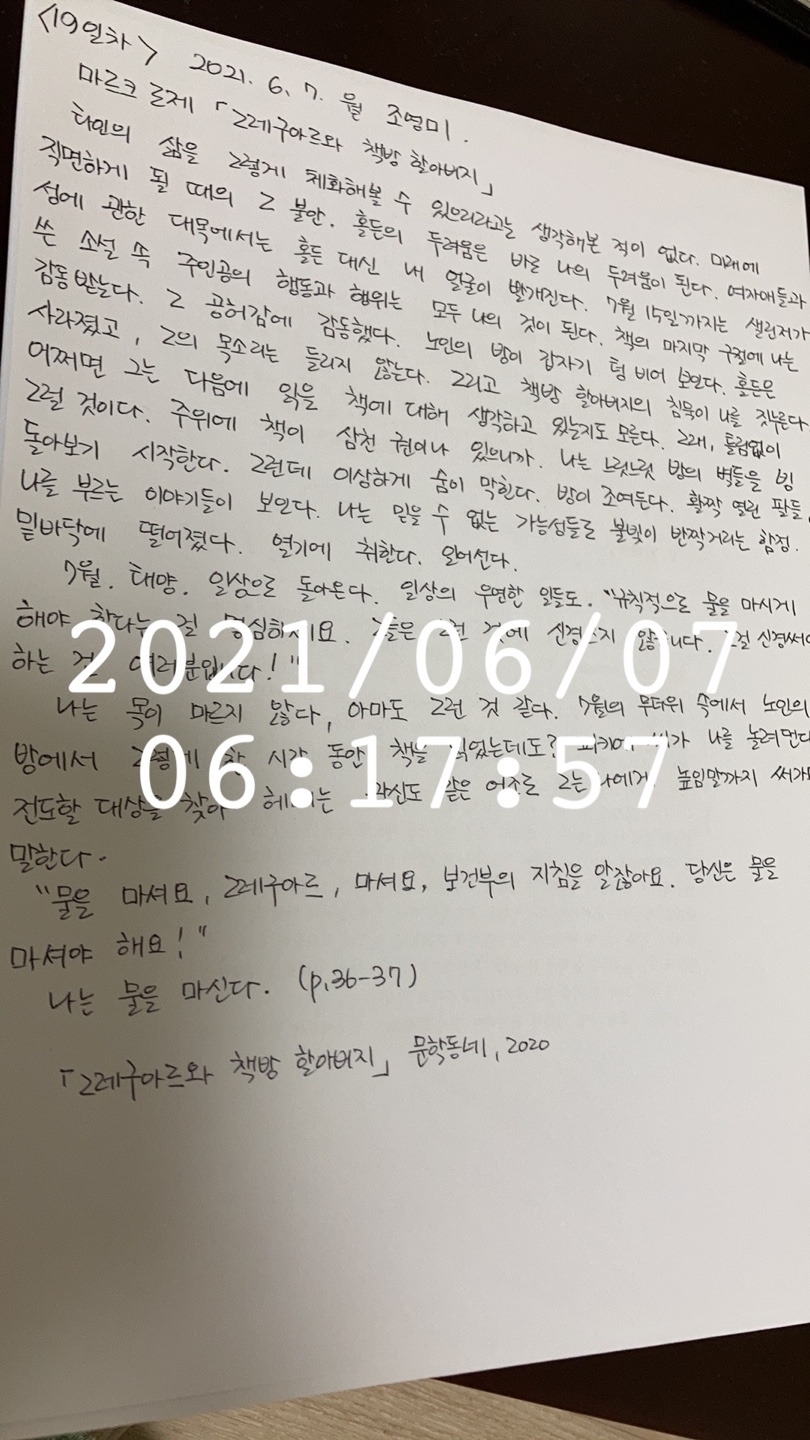 <19일차> 2021. 6. 7. 월 조영미.
마르크 로제 「그레구아르와 책방 할아버지」
타인의 삶을 그렇게 체화해볼 수 있으리라고는 생각해본 적이 없다. 미래에
직면하게 될 때의 그 불안. 홀든의 두려움은 바로 나의 두려움이 된다. 여자애들과
성에 관한 대목에서는 홀든 대신 내 얼굴이 빨개진다. 7월 15일까지는 샐린저가
쓴 소설 속 주인공의 행동과 행위는 모두 나의 것이 된다. 책의 마지막 구절에 나는
감동받는다. 그 공허감에 감동했다. 노인의 방이 갑자기 텅 비어 보인다. 홀든은
사라졌고, 그의 목소리는 들리지 않는다. 그리고 책방 할아버지의 침묵이 나를 짓누른다.
어쩌면 그는 다음에 읽을 책에 대해 생각하고 있는지도 모른다. 그래, 틀림없이
그럴 것이다. 주위에 책이 삼천 권이나 있으니까. 나는 느릿느릿 방의 벽들을 빙
돌아보기 시작한다. 그런데 이상하게 숨이 막힌다. 방이 조여든다. 활짝 열린 팔들,
나를 부르는 이야기들이 보인다. 나는 믿을 수 없는 가능성들로 불빛이 반짝거리는 함정.
밑바닥에 떨어졌다. 열기에 취한다. 일어선다.
7월. 태양. 일상으로 돌아온다. 일상의 우연한 일들도. "규칙적으로 물을 마시게
해야 한다는 걸 명심하세요. 그들은 그런 것에 신경쓰지 않습니다. 그걸 신경써야
하는 건 여러분입니다!"
2021/06/07
나는 목이 마르지 않다, 아마도 그런 것 같다. 7월의 무더위 속에서 노인의
방에서 그렇게 한 시간 동안 책을 읽었는데도? 가 나를 놀려먼다
06:17:57
전도할 대상을 찾아 헤매는 광신도 같은 어조로 그는 나에게 높임말까지 써가며
말한다.
"물을 마셔요, 그레구아르, 마셔요, 보건부의 지침을 알잖아요. 당신은 물을
마셔야 해요!"
나는 물을 마신다. (p.36-37)
「그레구아르와 책방 할아버지」 문학동네, 2020